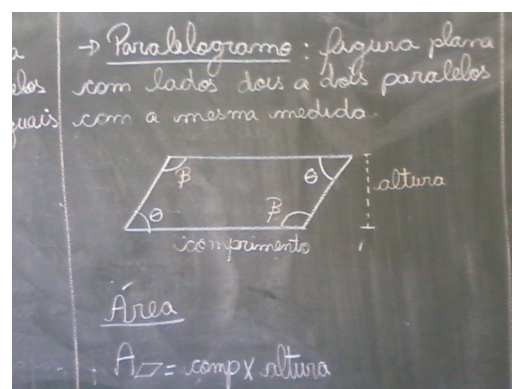 a
elos
guais
→ Paralelogramo: figura plana
com lados dois a dois paralelos
com a mesma medida.
β
θ
θ
β
altura
comprimento
Área
A▱ = comp x altura